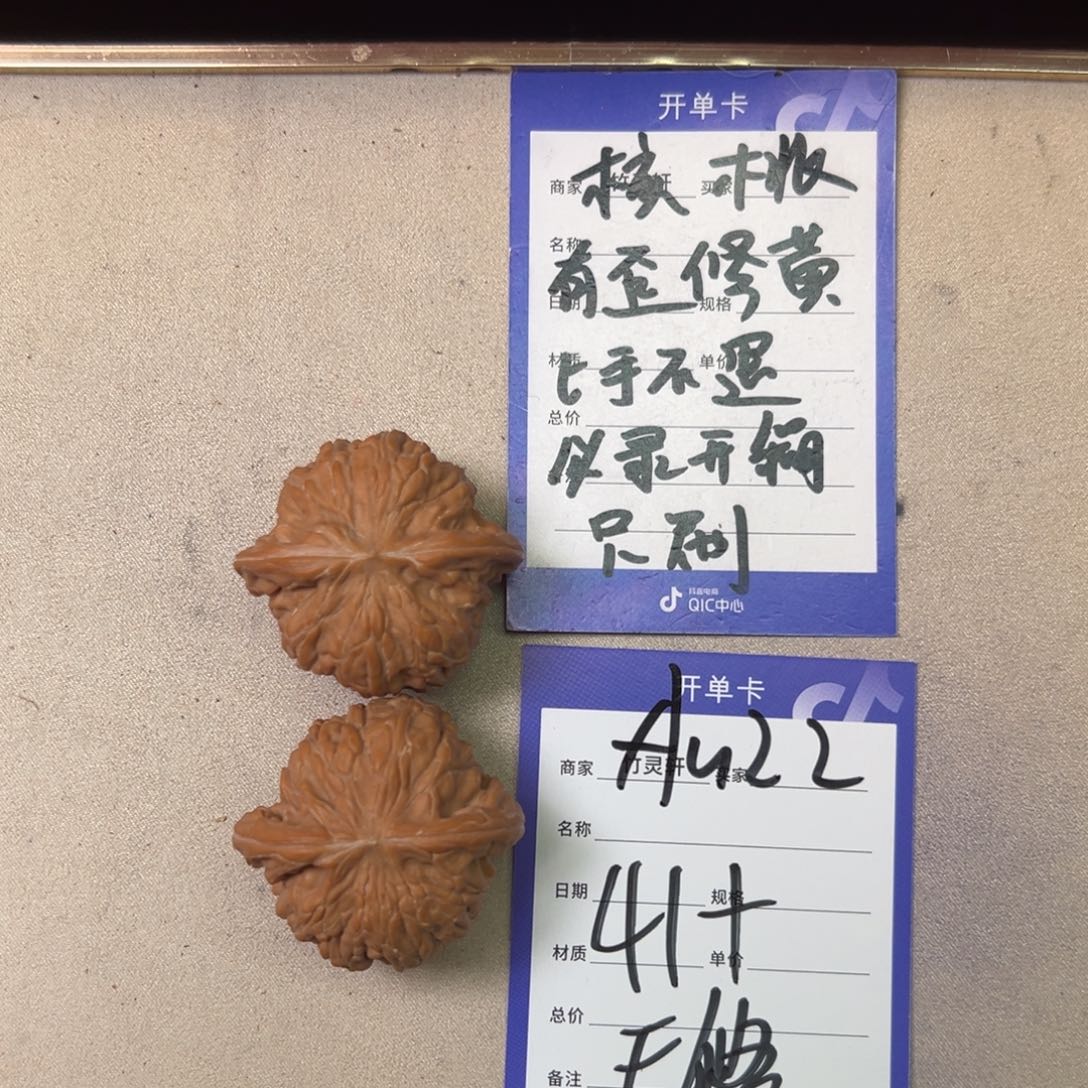 开单卡
核桃
商家 买家
名称
有歪修黄
日期 规格
材质 单价
上手不退
总价
仅录开箱
只刷
抖音电商
QIC中心
开单卡
Au22
商家 竹灵轩 买家
名称
41+
日期 规格
材质 单价
总价
备注